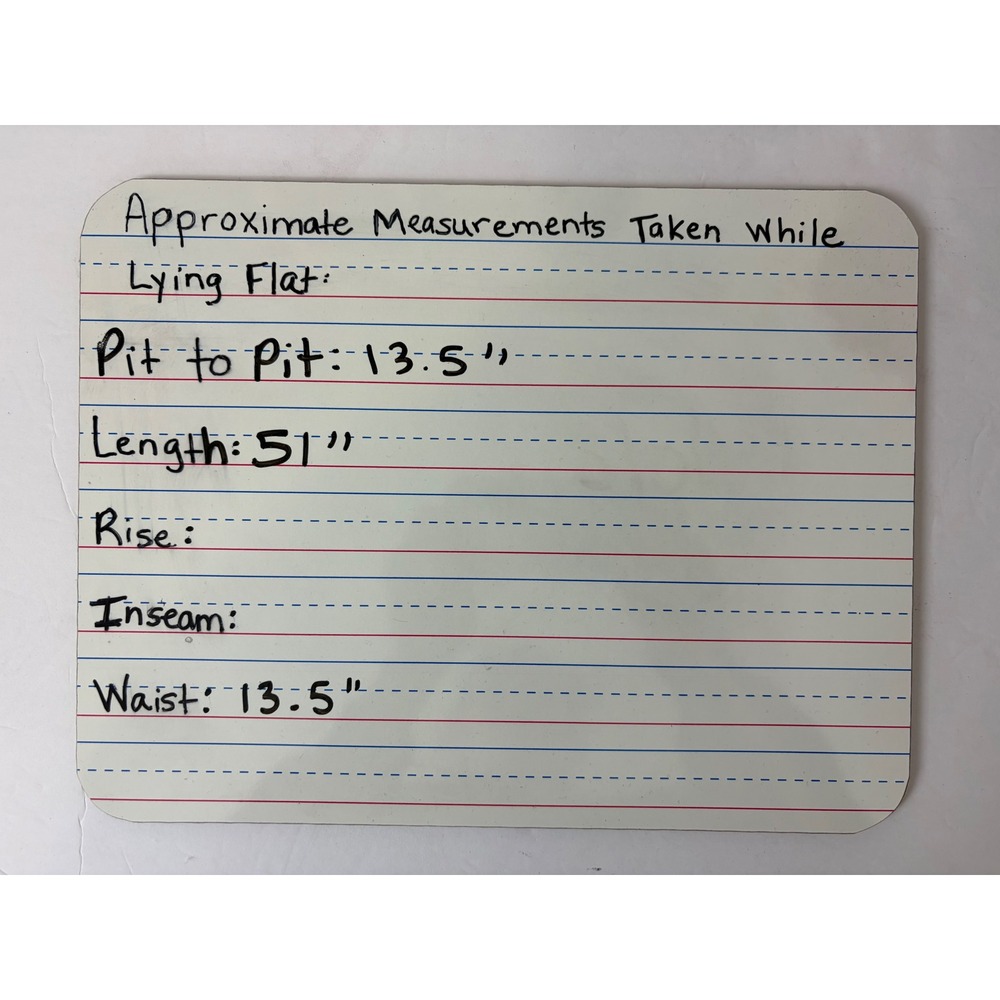 Approximate Measurements Taken While
Lying Flat:
Pit to Pit: 13.5"
Length: 51"
Rise:
Inseam:
Waist: 13.5"